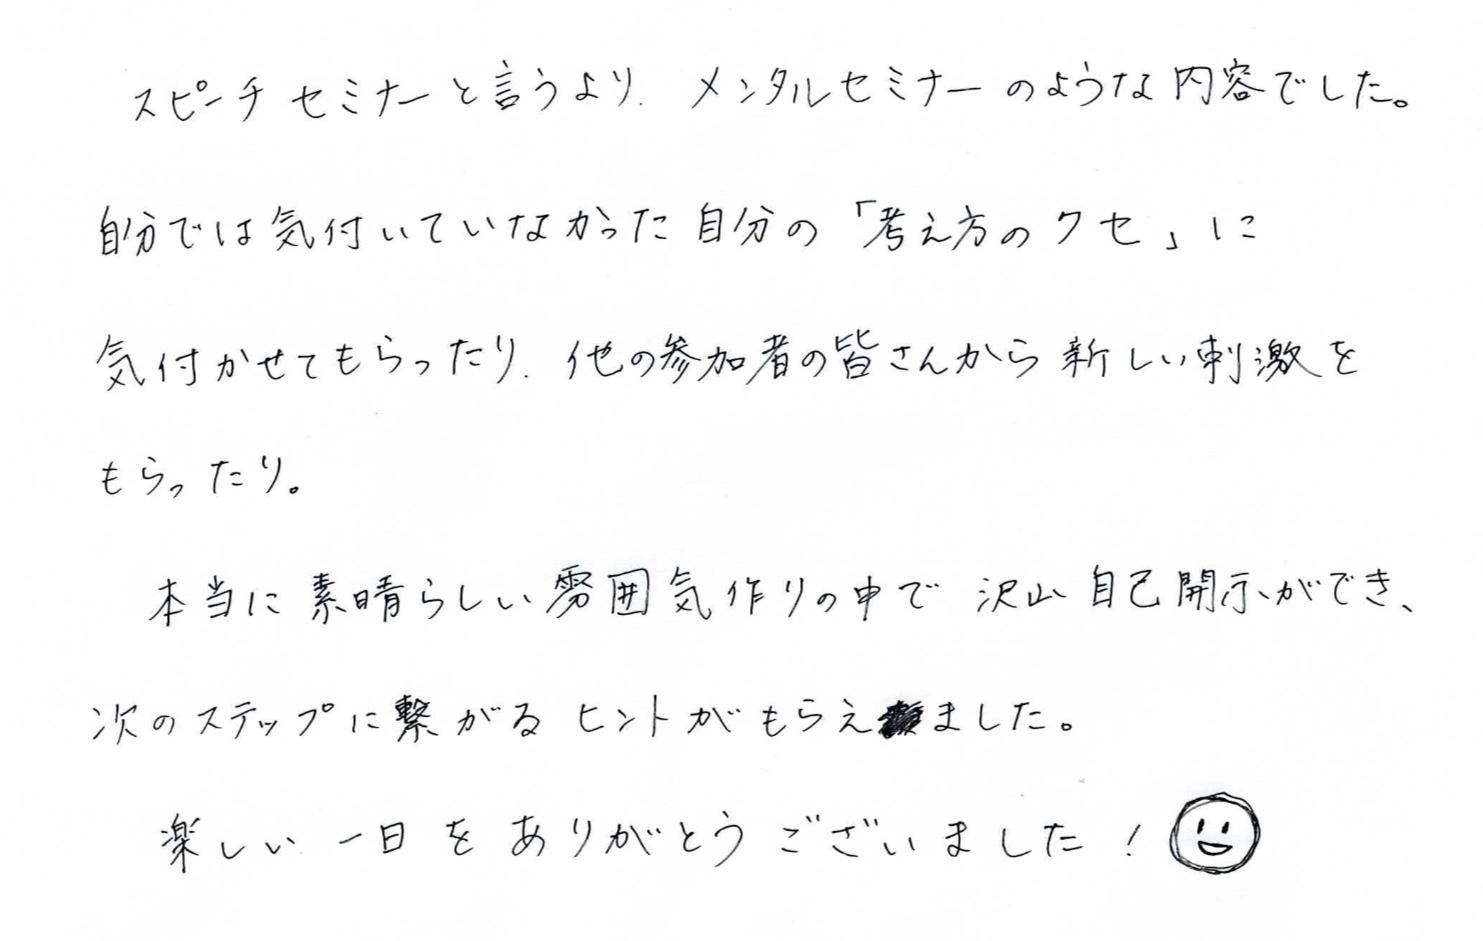 スピーチセミナーと言うより、メンタルセミナーのような内容でした。
自分では気付いていなかった自分の「考え方のクセ」に
気付かせてもらったり、他の参加者の皆さんから新しい刺激を
もらったり。
本当に素晴らしい雰囲気作りの中で沢山自己開示ができ、
次のステップに繋がるヒントがもらえました。
楽しい一日をありがとうございました!